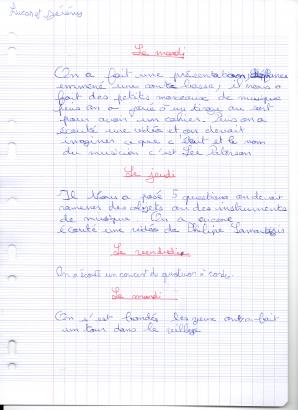 Le mardi
On a fait une présentation,
emmené une contre basse, il nous a
fait des petits morceaux de musique
puis on a joué à un tirage au sort
pour avoir un cahier. Puis on a
écouté une vidéo et on devait
imaginer ce que c'était et le nom
du musicien c'est
Le jeudi
Il nous a posé 5 questions on devait
ramener des objets ou des instruments
de musique. On a encore
écouté une vidéo de Philipe
Le vendredi
On a écouté un concert du quatuor à cordes.
Le mardi
On s'est bandés les yeux on a fait
un tour dans le village